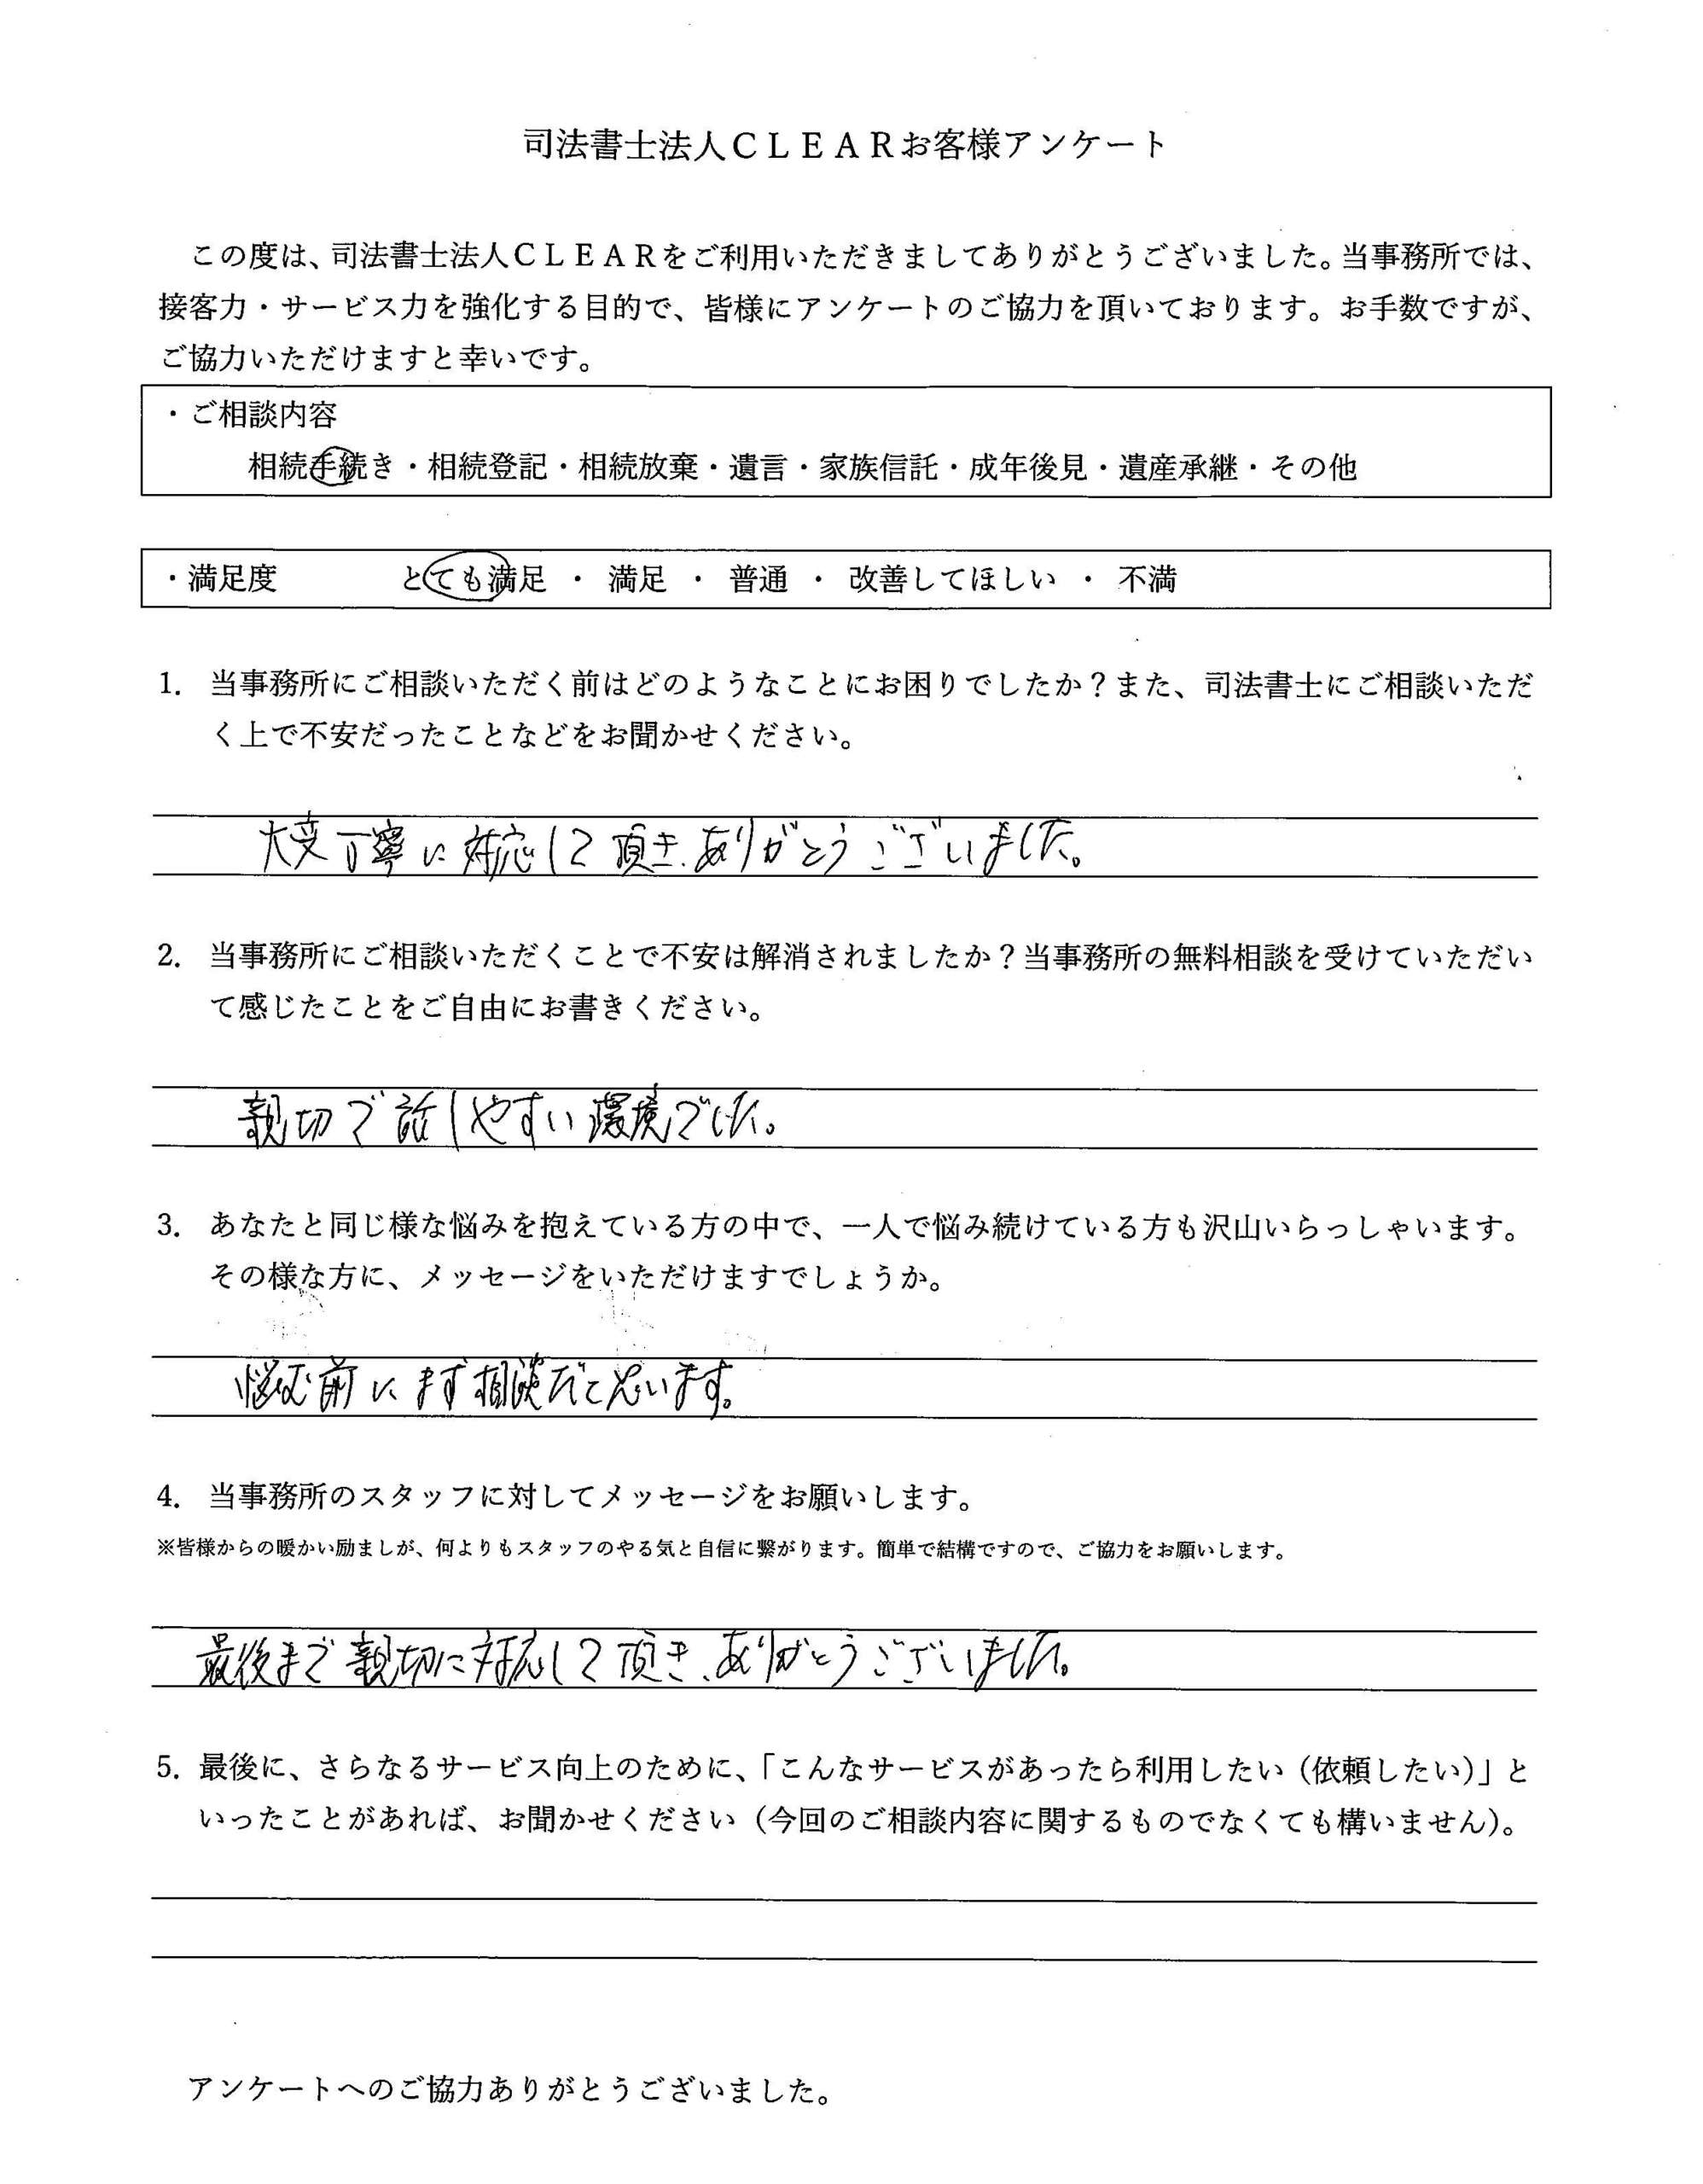 司法書士法人ＣＬＥＡＲお客様アンケート
この度は、司法書士法人ＣＬＥＡＲをご利用いただきましてありがとうございました。当事務所では、
接客力・サービス力を強化する目的で、皆様にアンケートのご協力を頂いております。お手数ですが、
ご協力いただけますと幸いです。
・ご相談内容
相続手続き・相続登記・相続放棄・遺言・家族信託・成年後見・遺産承継・その他
・満足度 とても満足 ・ 満足 ・ 普通 ・ 改善してほしい ・ 不満
1. 当事務所にご相談いただく前はどのようなことにお困りでしたか？また、司法書士にご相談いただ
く上で不安だったことなどをお聞かせください。
大変丁寧に対応して頂き、ありがとうございました。
2. 当事務所にご相談いただくことで不安は解消されましたか？当事務所の無料相談を受けていただい
て感じたことをご自由にお書きください。
親切で話しやすい環境でした。
3. あなたと同じ様な悩みを抱えている方の中で、一人で悩み続けている方も沢山いらっしゃいます。
その様な方に、メッセージをいただけますでしょうか。
悩む前にまず相談だと思います。
4. 当事務所のスタッフに対してメッセージをお願いします。
※皆様からの暖かい励ましが、何よりもスタッフのやる気と自信に繋がります。簡単で結構ですので、ご協力をお願いします。
最後まで親切に対応して頂き、ありがとうございました。
5. 最後に、さらなるサービス向上のために、「こんなサービスがあったら利用したい（依頼したい）」と
いったことがあれば、お聞かせください（今回のご相談内容に関するものでなくても構いません）。
アンケートへのご協力ありがとうございました。